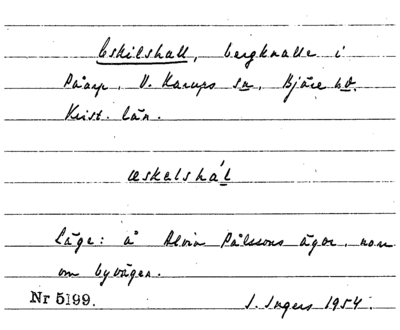 Eskilshall, bergknalle i
Påarp, V. Karups sn, Bjäre hd.
Krist. län.
æskelshál
Läge: å Alvin Pålssons ägor, norr
om byvägen.
Nr 5199. I. Ingers 1954.